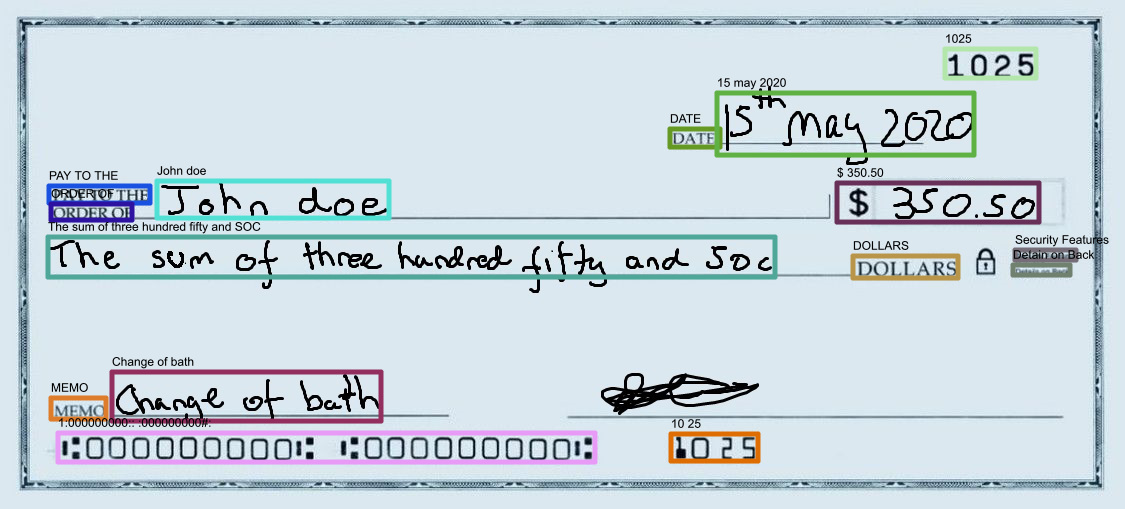 1025
1025
15 may 2020
DATE
DATE 15th May 2020
PAY TO THE John doe $ 350.50
ORDER OF
PAY TO THE
ORDER OF John doe $ 350.50
The sum of three hundred fifty and SOC
The sum of three hundred fifty and 50c
DOLLARS
DOLLARS
Security Features
Detain on Back
Change of bath
MEMO
MEMO Change of bath
1:000000000:: :000000000#: 10 25
1:0000000001: 1:0000000001: 1025